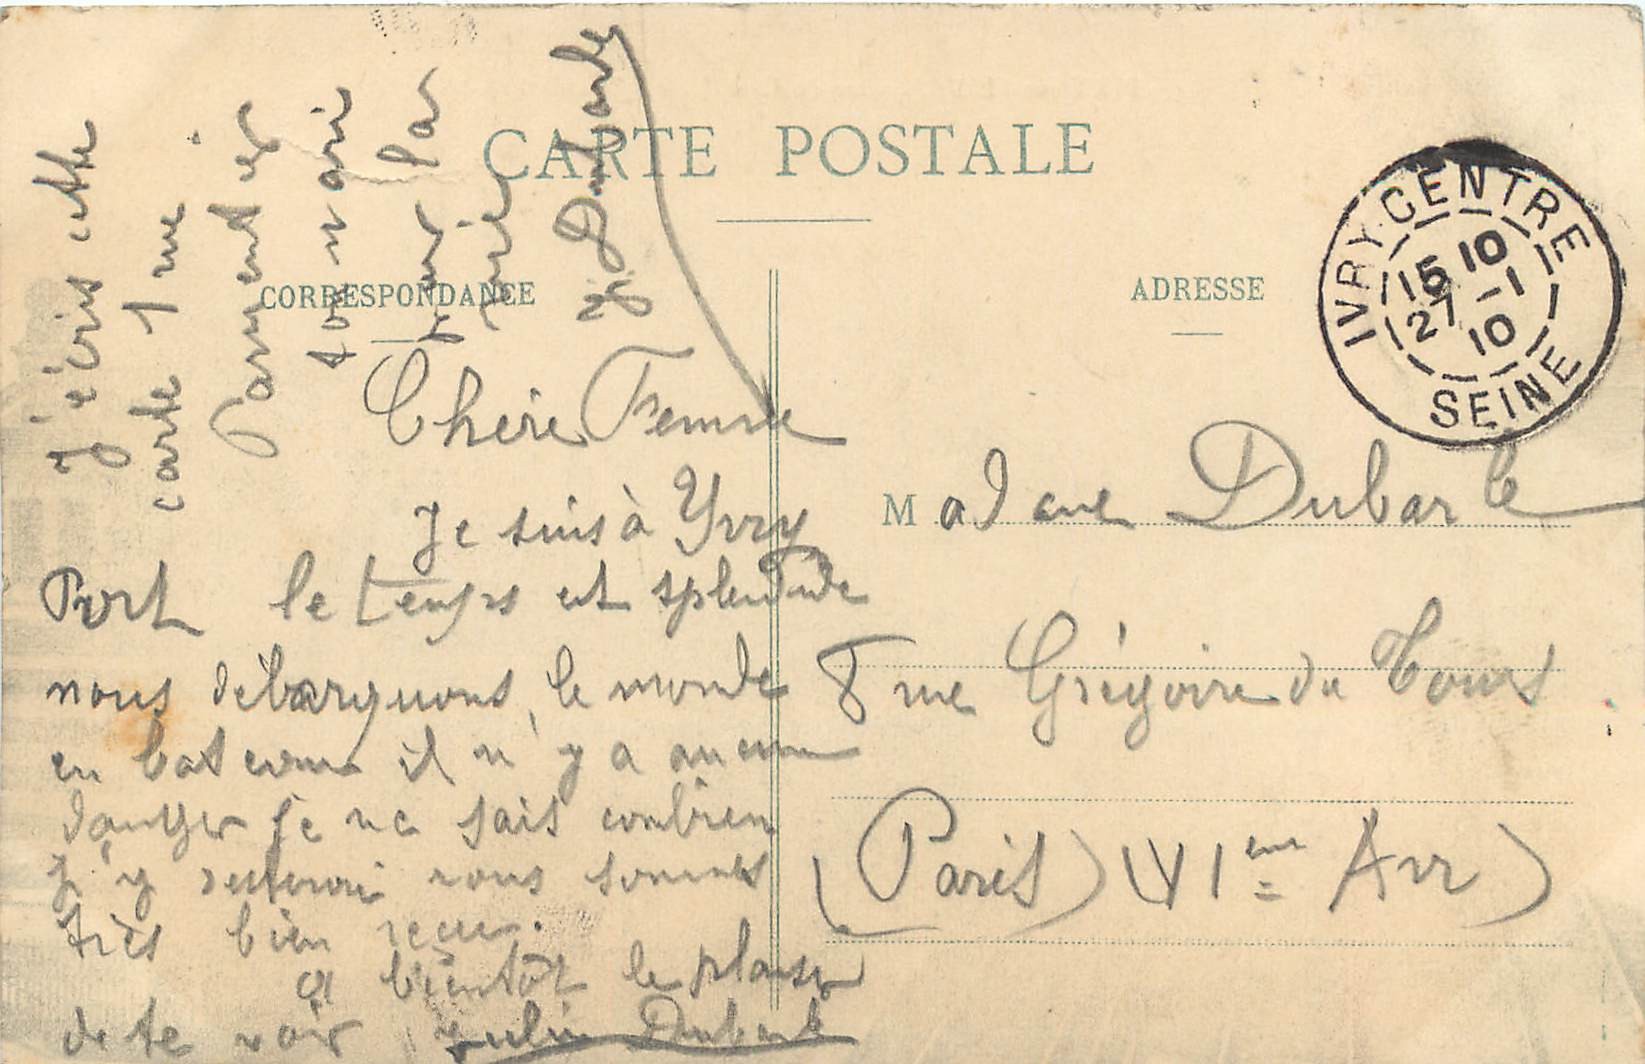 CARTE POSTALE
CORRESPONDANCE
ADRESSE
IVRY-CENTRE
15 10
27 -1
10
SEINE
Chère Femme
Je suis à Yvry
Port le temps est splendide
nous débarquons le monde
en bateau il n'y a aucun
danger je ne sais combien
j'y resterai nous sommes
très bien reçu.
a bientôt le plaisir
de te voir Julien Dubarle
J'écris cette
carte 1 rue
Parmentier
ton mari
pour la
vie
J. Dubarle
Madame Dubarle
8 rue Grégoire de Tours
(Paris) (VIeme Arr)